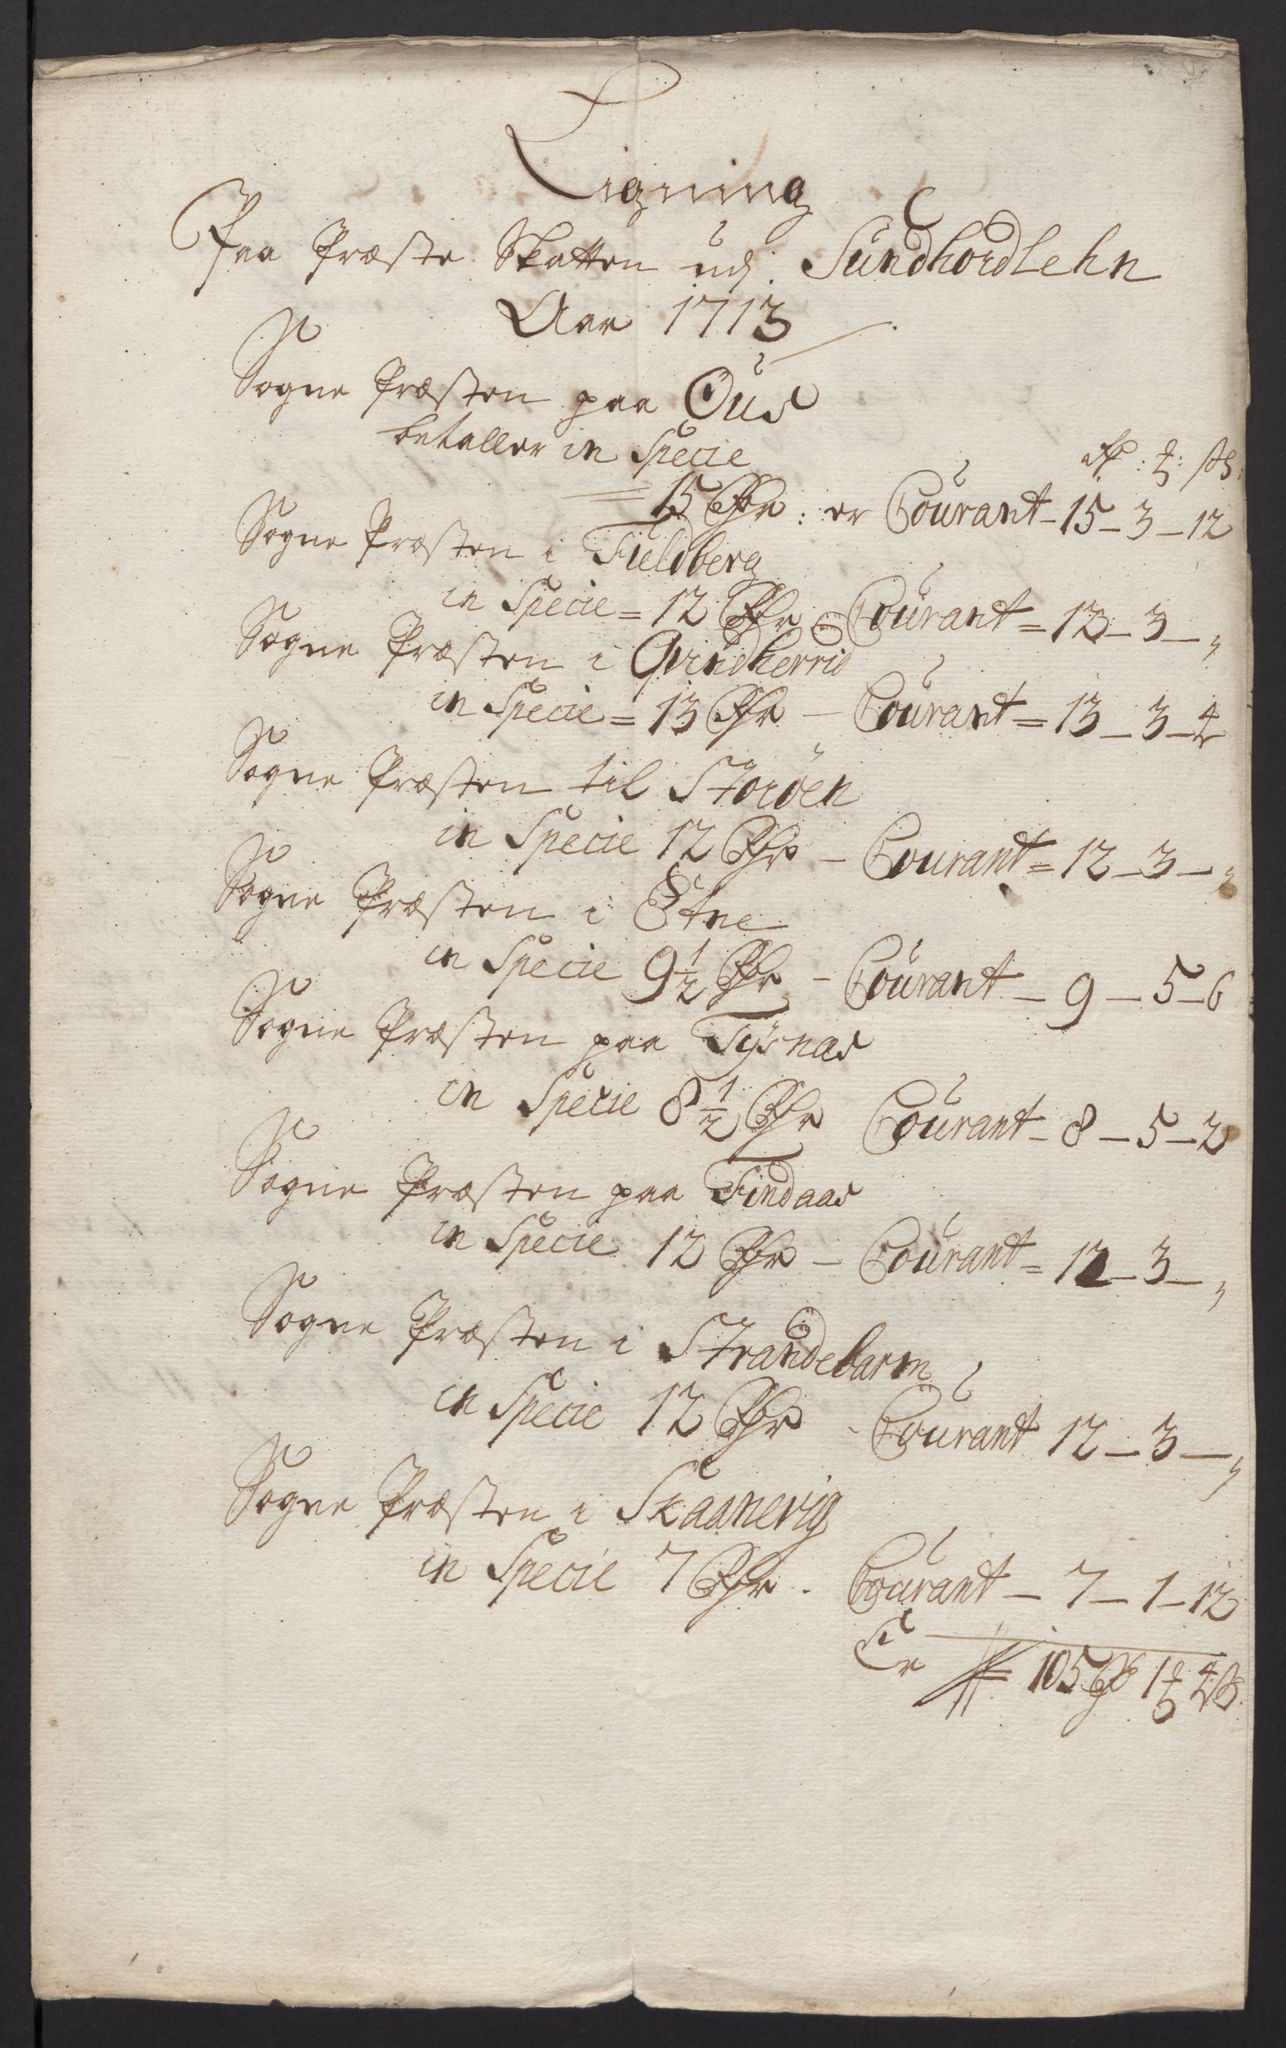 Ligning
Paa Præste Skatten udj Sundhordlehn
Aar 1713
Sogne Præsten paa Ous
betaller in Specie
Rdr : ₰ : ß
15 Rdr : er Courant - 15 - 3 - 12
Sogne Præsten i Fieldberg
in Specie = 12 Rdr = Courant = 12 - 3 - "
Sogne Præsten i Qvindherrid
in Specie = 13 Rdr - Courant = 13 - 3 - 4
Sogne Præsten til Storöen
in Specie 12 Rdr - Courant = 12 - 3 - "
Sogne Præsten i Etne
in Specie 9 1/2 Rdr - Courant - 9 - 5 - 6
Sogne Præsten paa Tysnæs
in Specie 8 1/2 Rdr Courant - 8 - 5 - 2
Sogne Præsten paa Findaas
in Specie 12 Rdr - Courant = 12 - 3 - "
Sogne Præsten i Strandebarm
in Specie 12 Rdr - Courant 12 - 3 - "
Sogne Præsten i Skaanevig
in Specie 7 Rdr . Courant - 7 - 1 - 12
Er 105 Rd 1 ₰ 4 ß